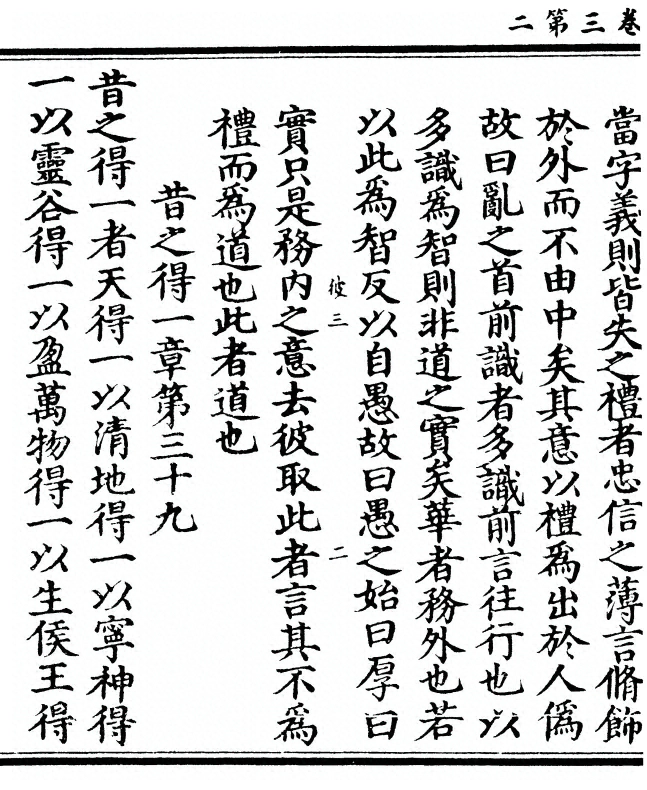 卷三第二
當字義則皆失之禮者忠信之薄言脩飾
於外而不由中矣其意以禮爲出於人僞
故曰亂之首前識者多識前言往行也以
多識爲智則非道之實矣華者務外也若
以此爲智反以自愚故曰愚之始曰厚曰
彼三
二
實只是務内之意去彼取此者言其不爲
禮而爲道也此者道也
昔之得一章第三十九
昔之得一者天得一以清地得一以寧神得
一以靈谷得一以盈萬物得一以生侯王得